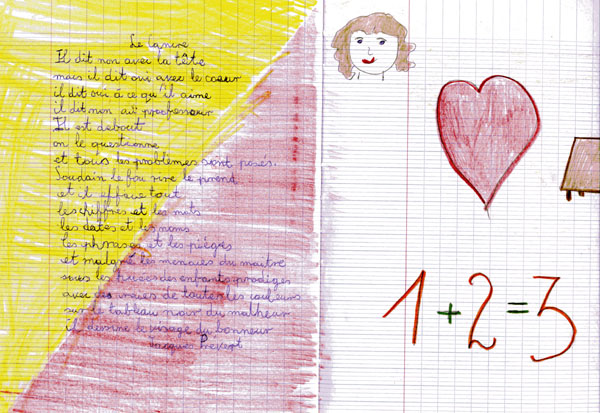 Le Cancre
Il dit non avec la tête
mais il dit oui avec le coeur
il dit oui à ce qu'il aime
il dit non au professeur
Il est debout
on le questionne
et tous les problèmes sont posés.
Soudain le fou rire le prend
et il efface tout
les chiffres et les mots
les dates et les noms
les phrases et les pièges
et malgré les menaces du maitre
sous les huées des enfants prodiges
avec des craies de toutes les couleurs
sur le tableau noir du malheur
il dessine le visage du bonheur
Jacques Prévert
1+2=3